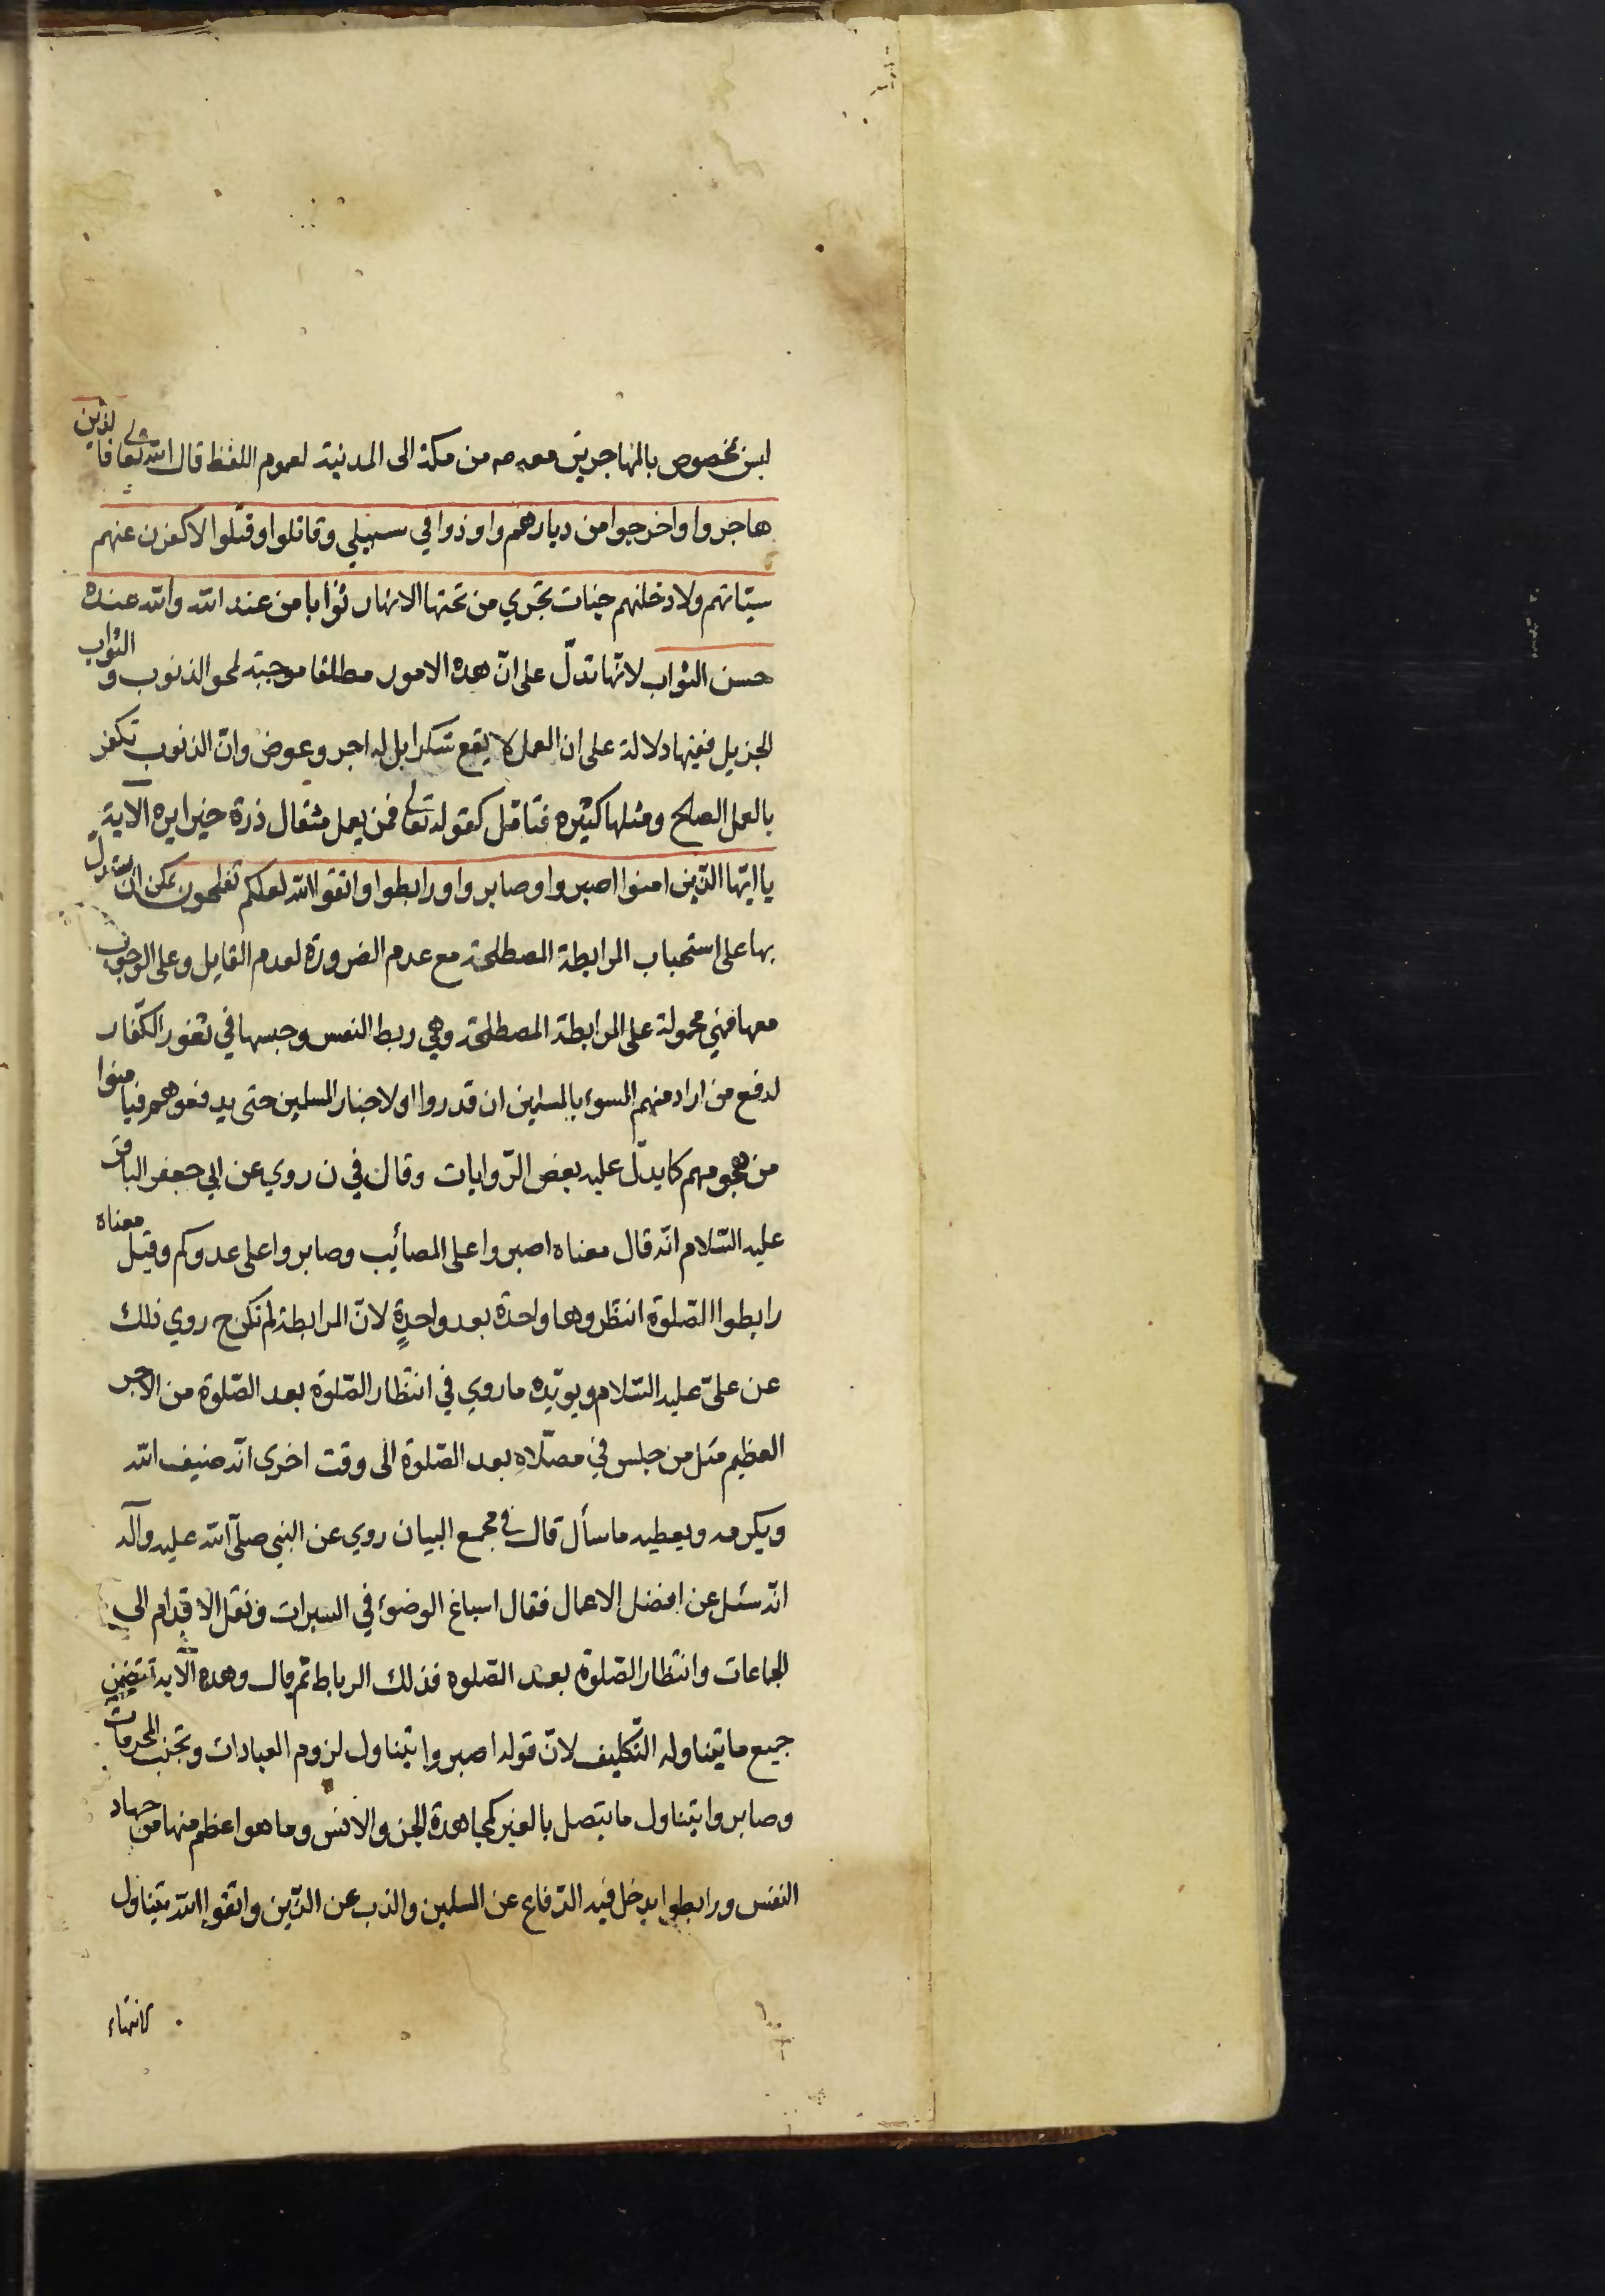 ليس بمخصوص بالمهاجرين معه صه من مكة الى المدينة لعموم اللفظ قال الله تعالى فالذين
هاجروا واخرجوا من ديارهم واوذوا في سبيلي وقاتلوا وقتلوا لاكفرن عنهم
سيّاتهم ولادخلنهم جنات تجري من تحتها الانهار ثوابا من عند الله والله عنده
حسن الثواب لانّها تدلّ على انّ هذه الامور مطلقا موجبته لمحو الذنوب و الثواب
الجزيل ففيها دلالة على ان العمل لا يقع شكرا بل له اجر وعوض وانّ الذنوب تكفر
بالعمل الصالح ومثلها كثيره فتامّل كقوله تعالى فمن يعمل مثقال ذرة خيرا يره الاية
يا ايّها الذين امنوا اصبروا وصابروا ورابطوا واتقوا الله لعلكم تفلحون يمكن ان يستدلّ
بها على استحباب المرابطة المصطلحة مع عدم الضرورة لعدم القايل وعلى الوجوب
معها فهي محمولة على المرابطة المصطلحة وهي ربط النفس وحبسها في ثغور الكفّار
لدفع من اراد منهم السوء بالمسلمين ان قدروا او لاخبار المسلمين حتى يدفعوهم فيامنوا
من هجومهم كما يدلّ عليه بعض الرّوايات وقال في ن روي عن ابي جعفر الباقر
عليه السّلام انّه قال معناه اصبروا على المصائب وصابروا على عدوكم وقيل معناه
رابطوا الصّلوة انتظروها واحدة بعد واحدةٍ لانّ المرابطة لم تكن ح روي ذلك
عن عليّ عليه السّلام ويويّده ما روي في انتظار الصّلوة بعد الصّلوة من الاجر
العظيم مثل من جلس في مصلّاه بعد الصّلوة الى وقت اخرى انّه ضيف الله
ويكرمه ويعطيه ما سأل قال في مجمع البيان روي عن النبي صلّى الله عليه وآله
انّه سئل عن افضل الاعمال فقال اسباغ الوضوء في السبرات ونقل الاقدام الى
الجماعات وانتظار الصّلوة بعد الصّلوه فذلك الرباط ثم قال وهذه الآية تتضمن
جميع ما يتناوله التّكليف لانّ قوله اصبروا يتناول لزوم العبادات وتجنب المحرمات
وصابروا يتناول ما يتصل بالغير كمجاهدة الجن والانس وما هو اعظم منها من جهاد
النفس ورابطوا يدخل فيه الدّفاع عن المسلمين والذب عن الدّين واتقوا الله يتناول
الانتهاء